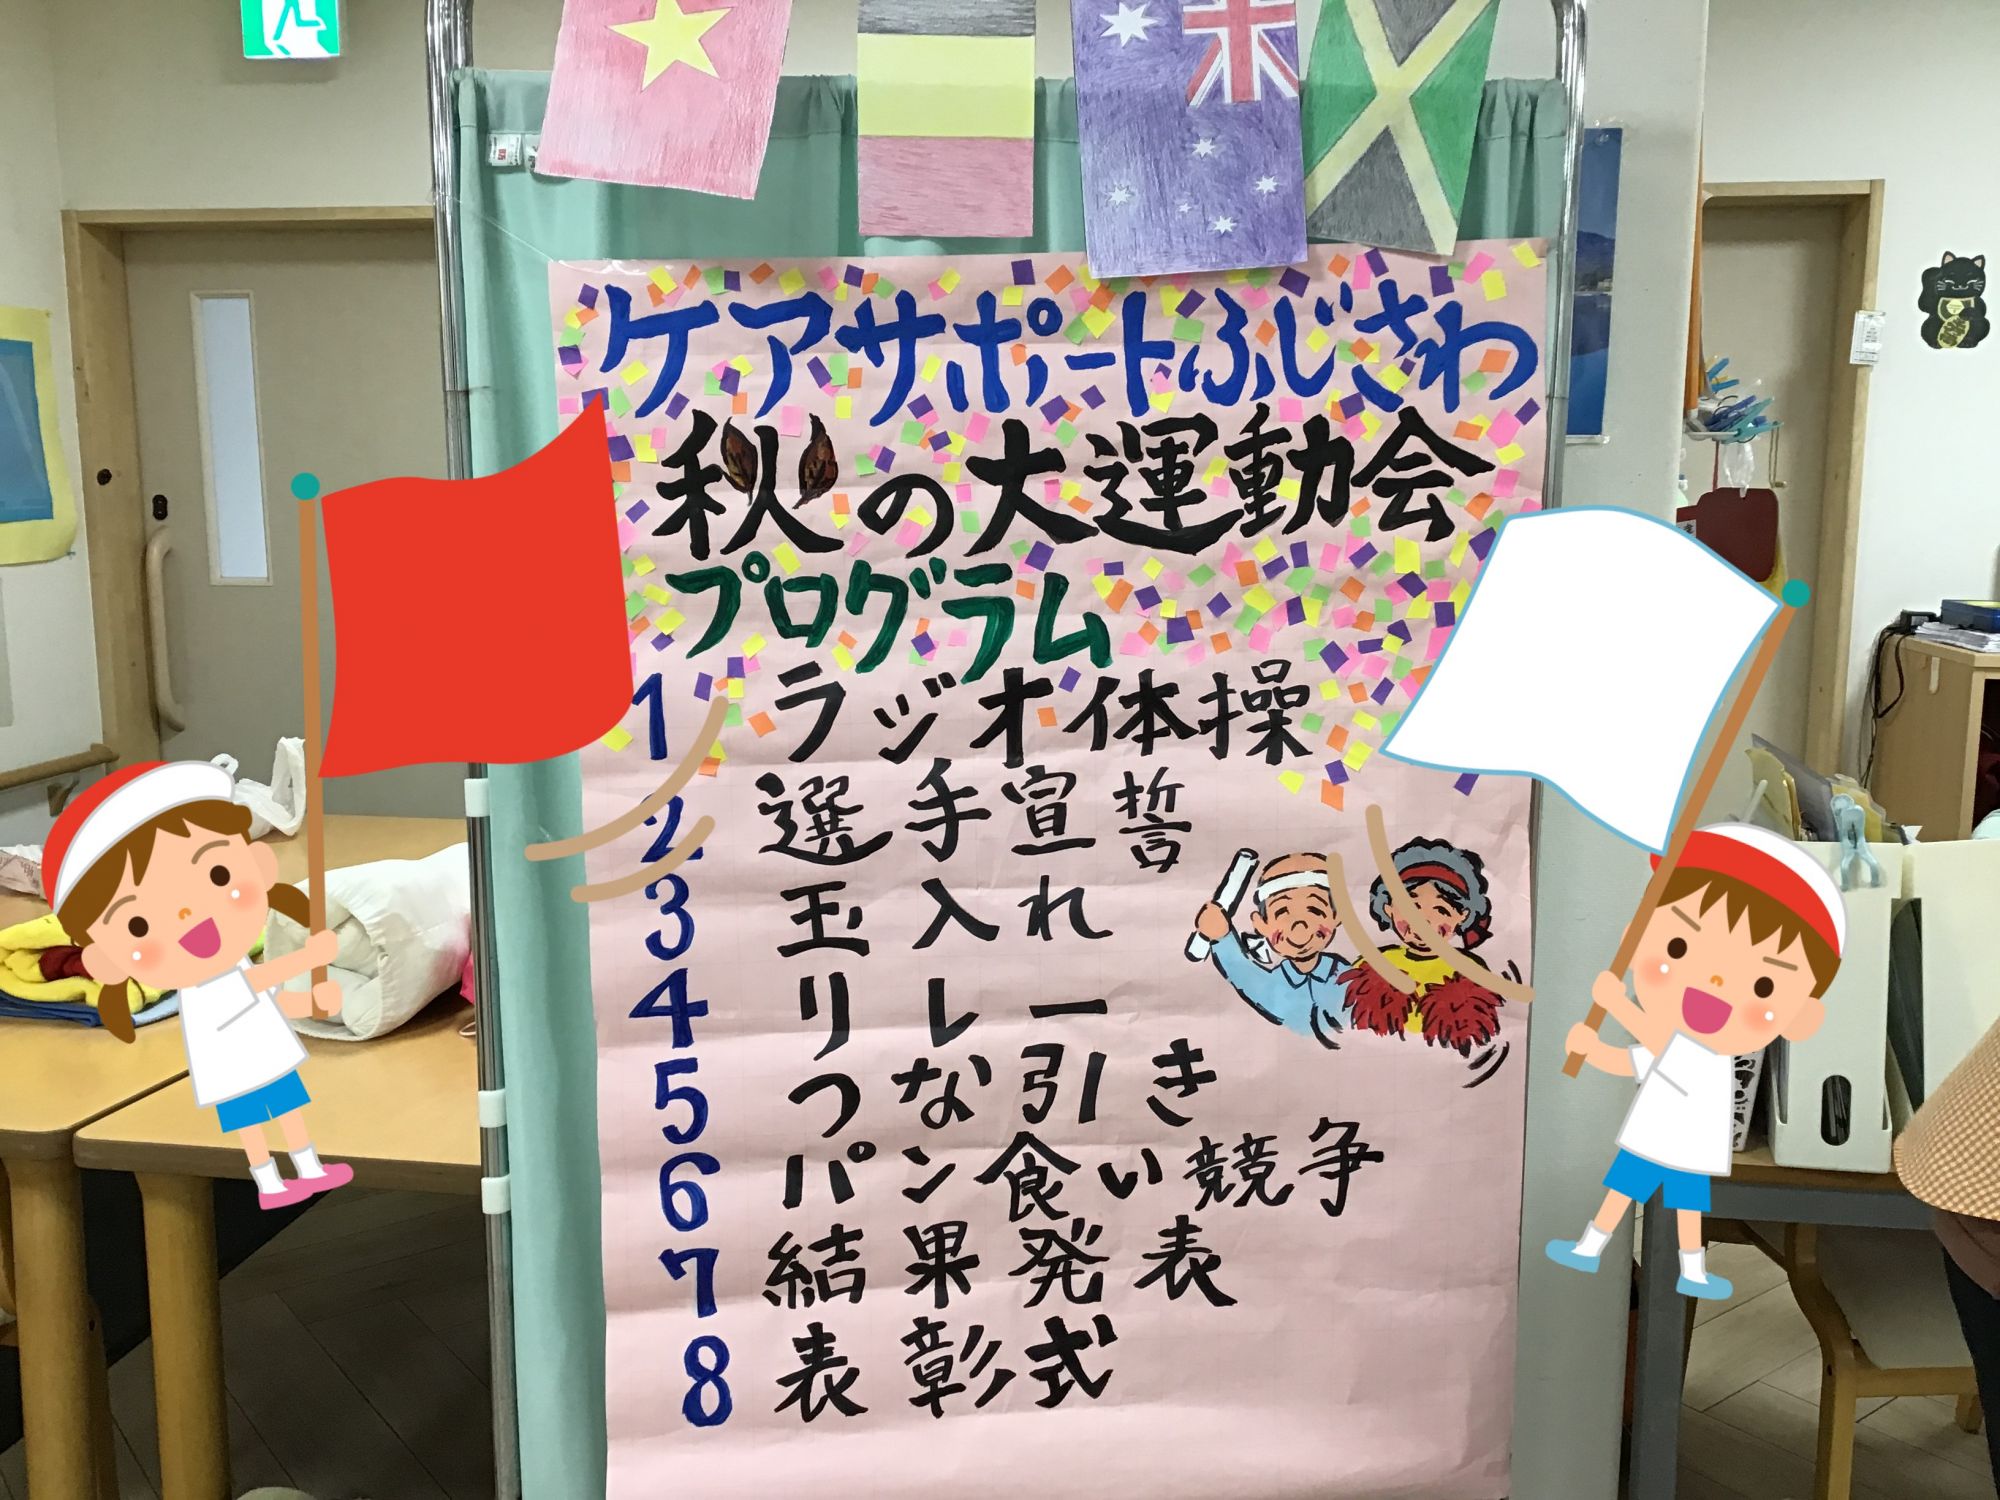 ケアサポートふじさわ
秋の大運動会
プログラム
1 ラジオ体操
2 選手宣誓
3 玉入れ
4 リレー
5 つな引き
6 パン食い競争
7 結果発表
8 表彰式